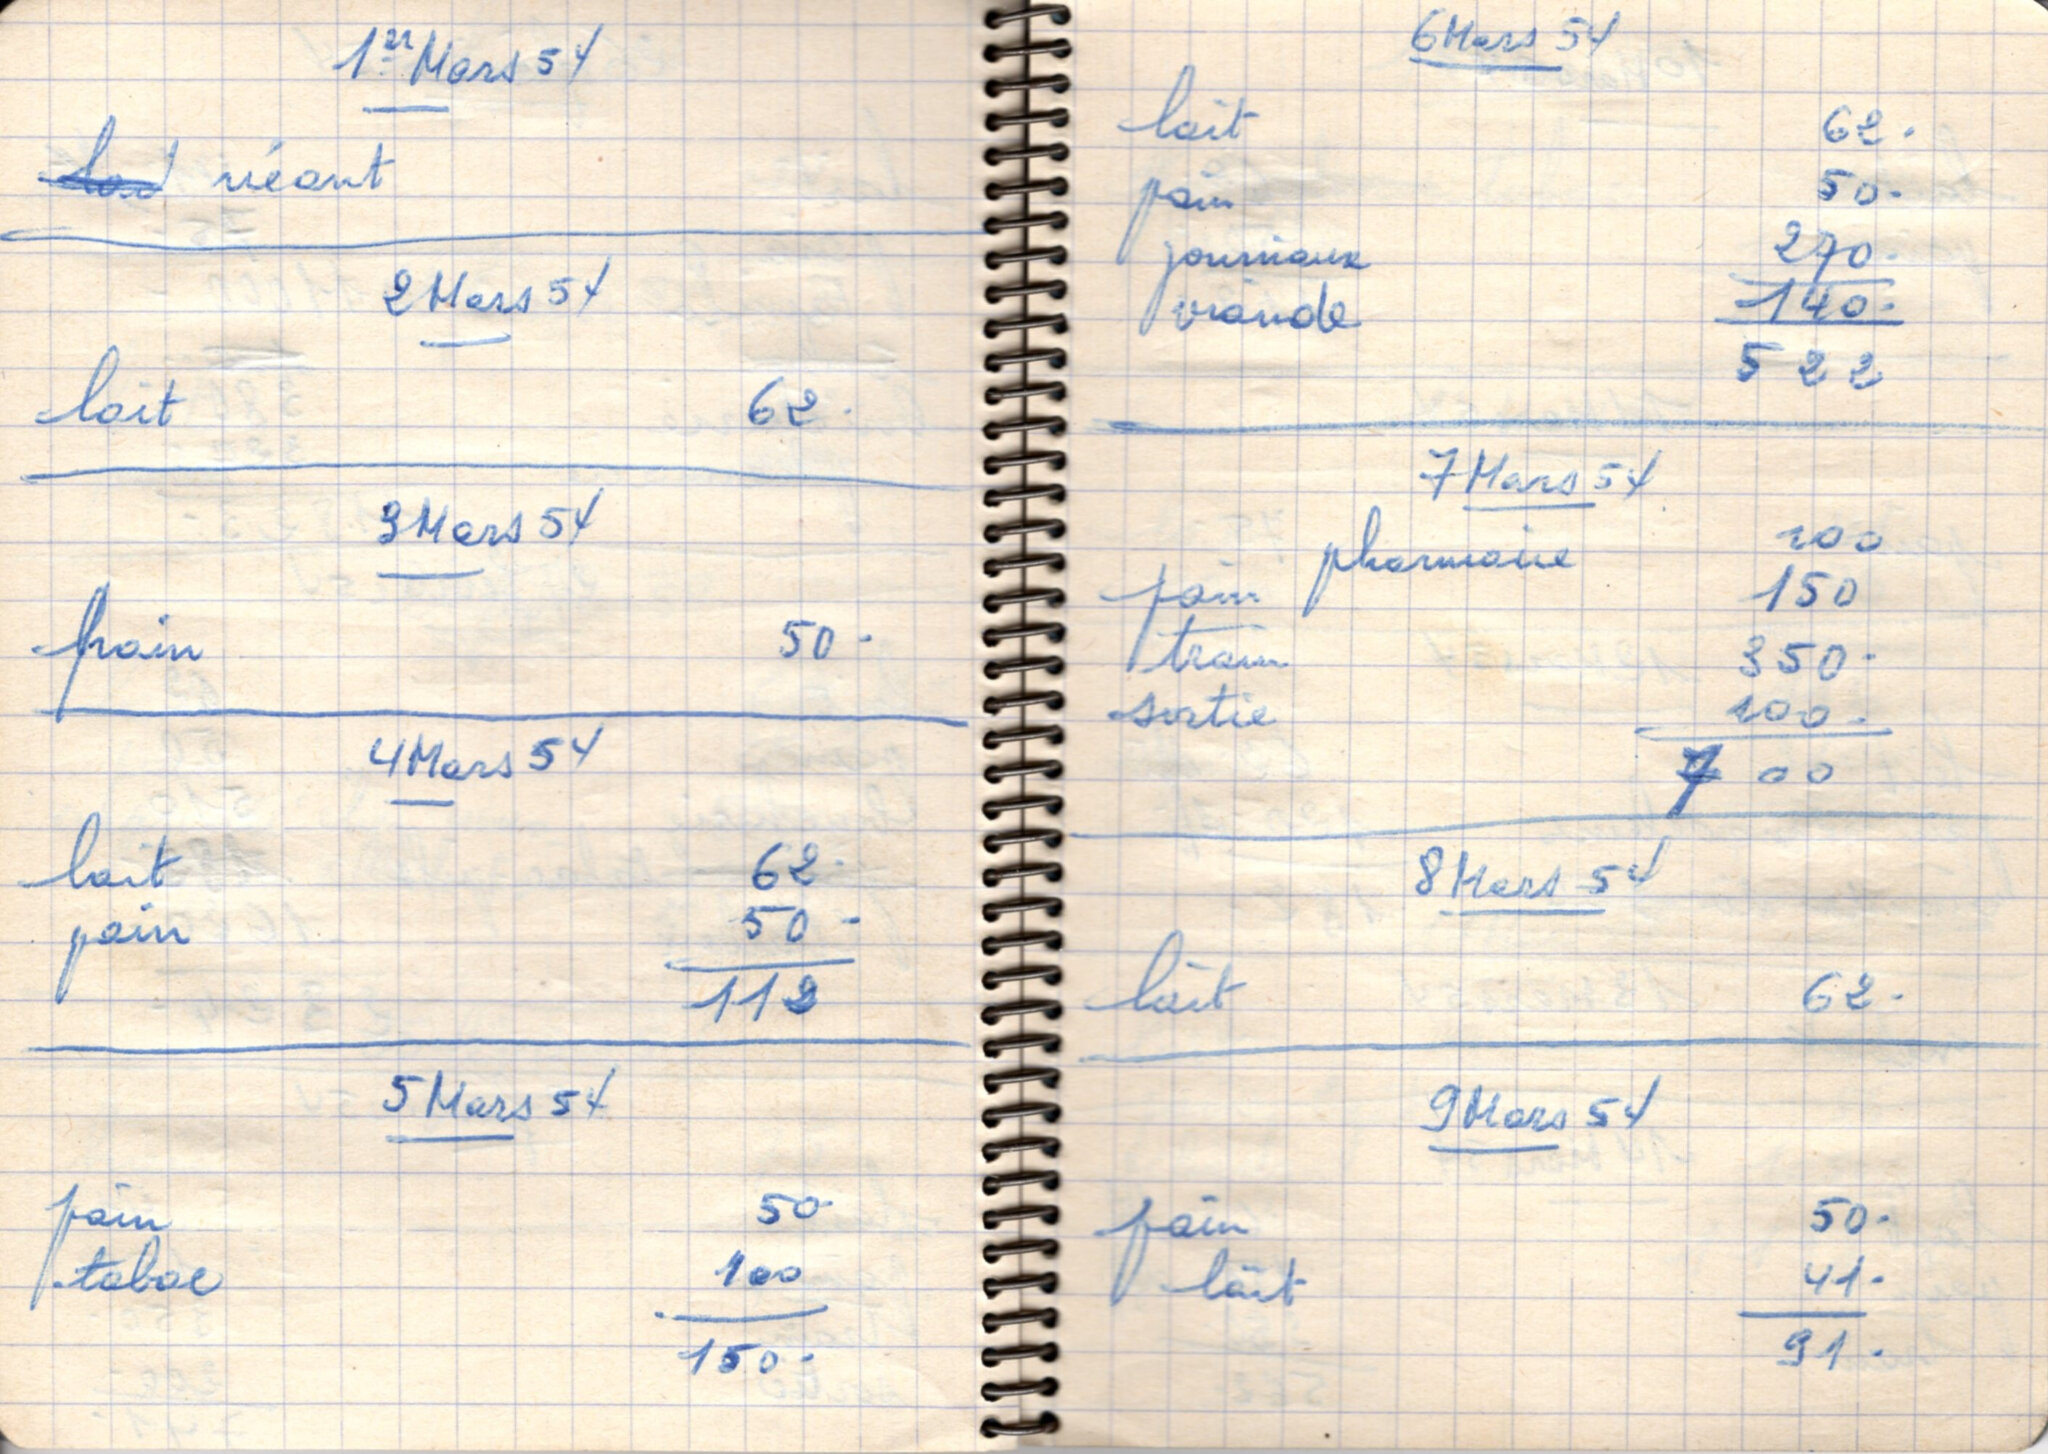 1er Mars 54
néant
2 Mars 54
lait 62.
3 Mars 54
pain 50-
4 Mars 54
lait 62-
pain 50-
112
5 Mars 54
pain 50-
tabac 100
150-
6 Mars 54
lait 62.
pain 50-
journaux 270-
viande 140-
522
7 Mars 54
pharmacie 100
pain 150
train 350-
sortie 100-
700
8 Mars 54
lait 62-
9 Mars 54
pain 50-
lait 41-
91-